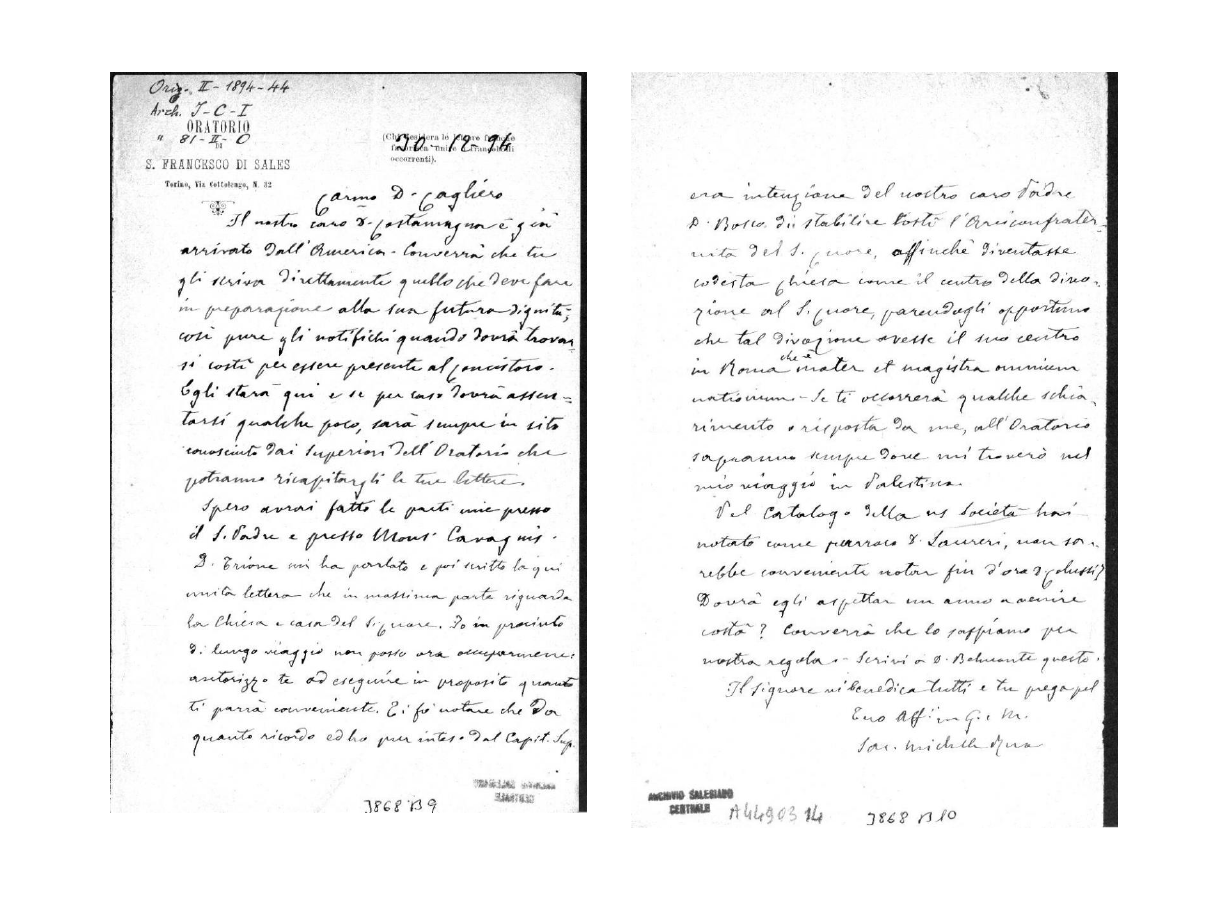 Orig. II - 1894-44
Arch. J-C-I
ORATORIO
" 81-II-0
DI
S. FRANCESCO DI SALES
Torino, Via Cottolengo, N. 32
(Chi desidera le lettere
occorrenti).
30-12-94
Carmo D. Cagliero
Il nostro caro D. Costamagna è già
arrivato dall'America - Converrà che tu
gli scriva direttamente quello che deve fare
in preparazione alla sua futura dignità;
così pure gli notifichi quando dovrà trovar-
si costì per essere presente al Concistoro.
Egli starà qui e se per caso dovrà assen=
tarsi qualche poco, sarà sempre in sito
conosciuto dai Superiori dell'Oratorio che
potranno ricapitargli le tue lettere.
Spero avrai fatto le parti mie presso
il S. Padre e presso Mons. Cavagnis.
D. Trione mi ha parlato e poi scritto la qui
unita lettera che in massima parte riguarda
la Chiesa e casa del S. Cuore. Io in procinto
di lungo viaggio non posso ora occuparmene:
autorizzo te ad eseguire in proposito quanto
ti parrà conveniente. Ti fo notare che da
quanto ricordo ed ho pur inteso dal Capit. Sup.
J868 B9
era intenzione del nostro caro Padre
D. Bosco di stabilire costì l'Arciconfrater-
nita del S. Cuore, affinchè diventasse
codesta Chiesa come il centro della divo-
zione al S. Cuore, parendogli opportuno
che tal divozione avesse il suo centro
in Roma che è mater et magistra omnium
nationum - Se ti occorrerà qualche schia-
rimento o risposta da me, all'Oratorio
sapranno sempre dove mi troverò nel
mio viaggio in Palestina.
Nel Catalogo della ns Società hai
notato come parroco D. Laureri, non sa-
rebbe conveniente notar fin d'ora D. Colussi?
Dovrà egli aspettar un anno a venire
costà? Converrà che lo sappiamo per
nostra regola - Scrivi a D. Belmonte questo.
Il Signore vi benedica tutti e tu prega pel
Tuo Aff. in G. e M.
Sac. Michele Rua
ARCHIVIO SALESIANO
CENTRALE
A4490314
J868 B10